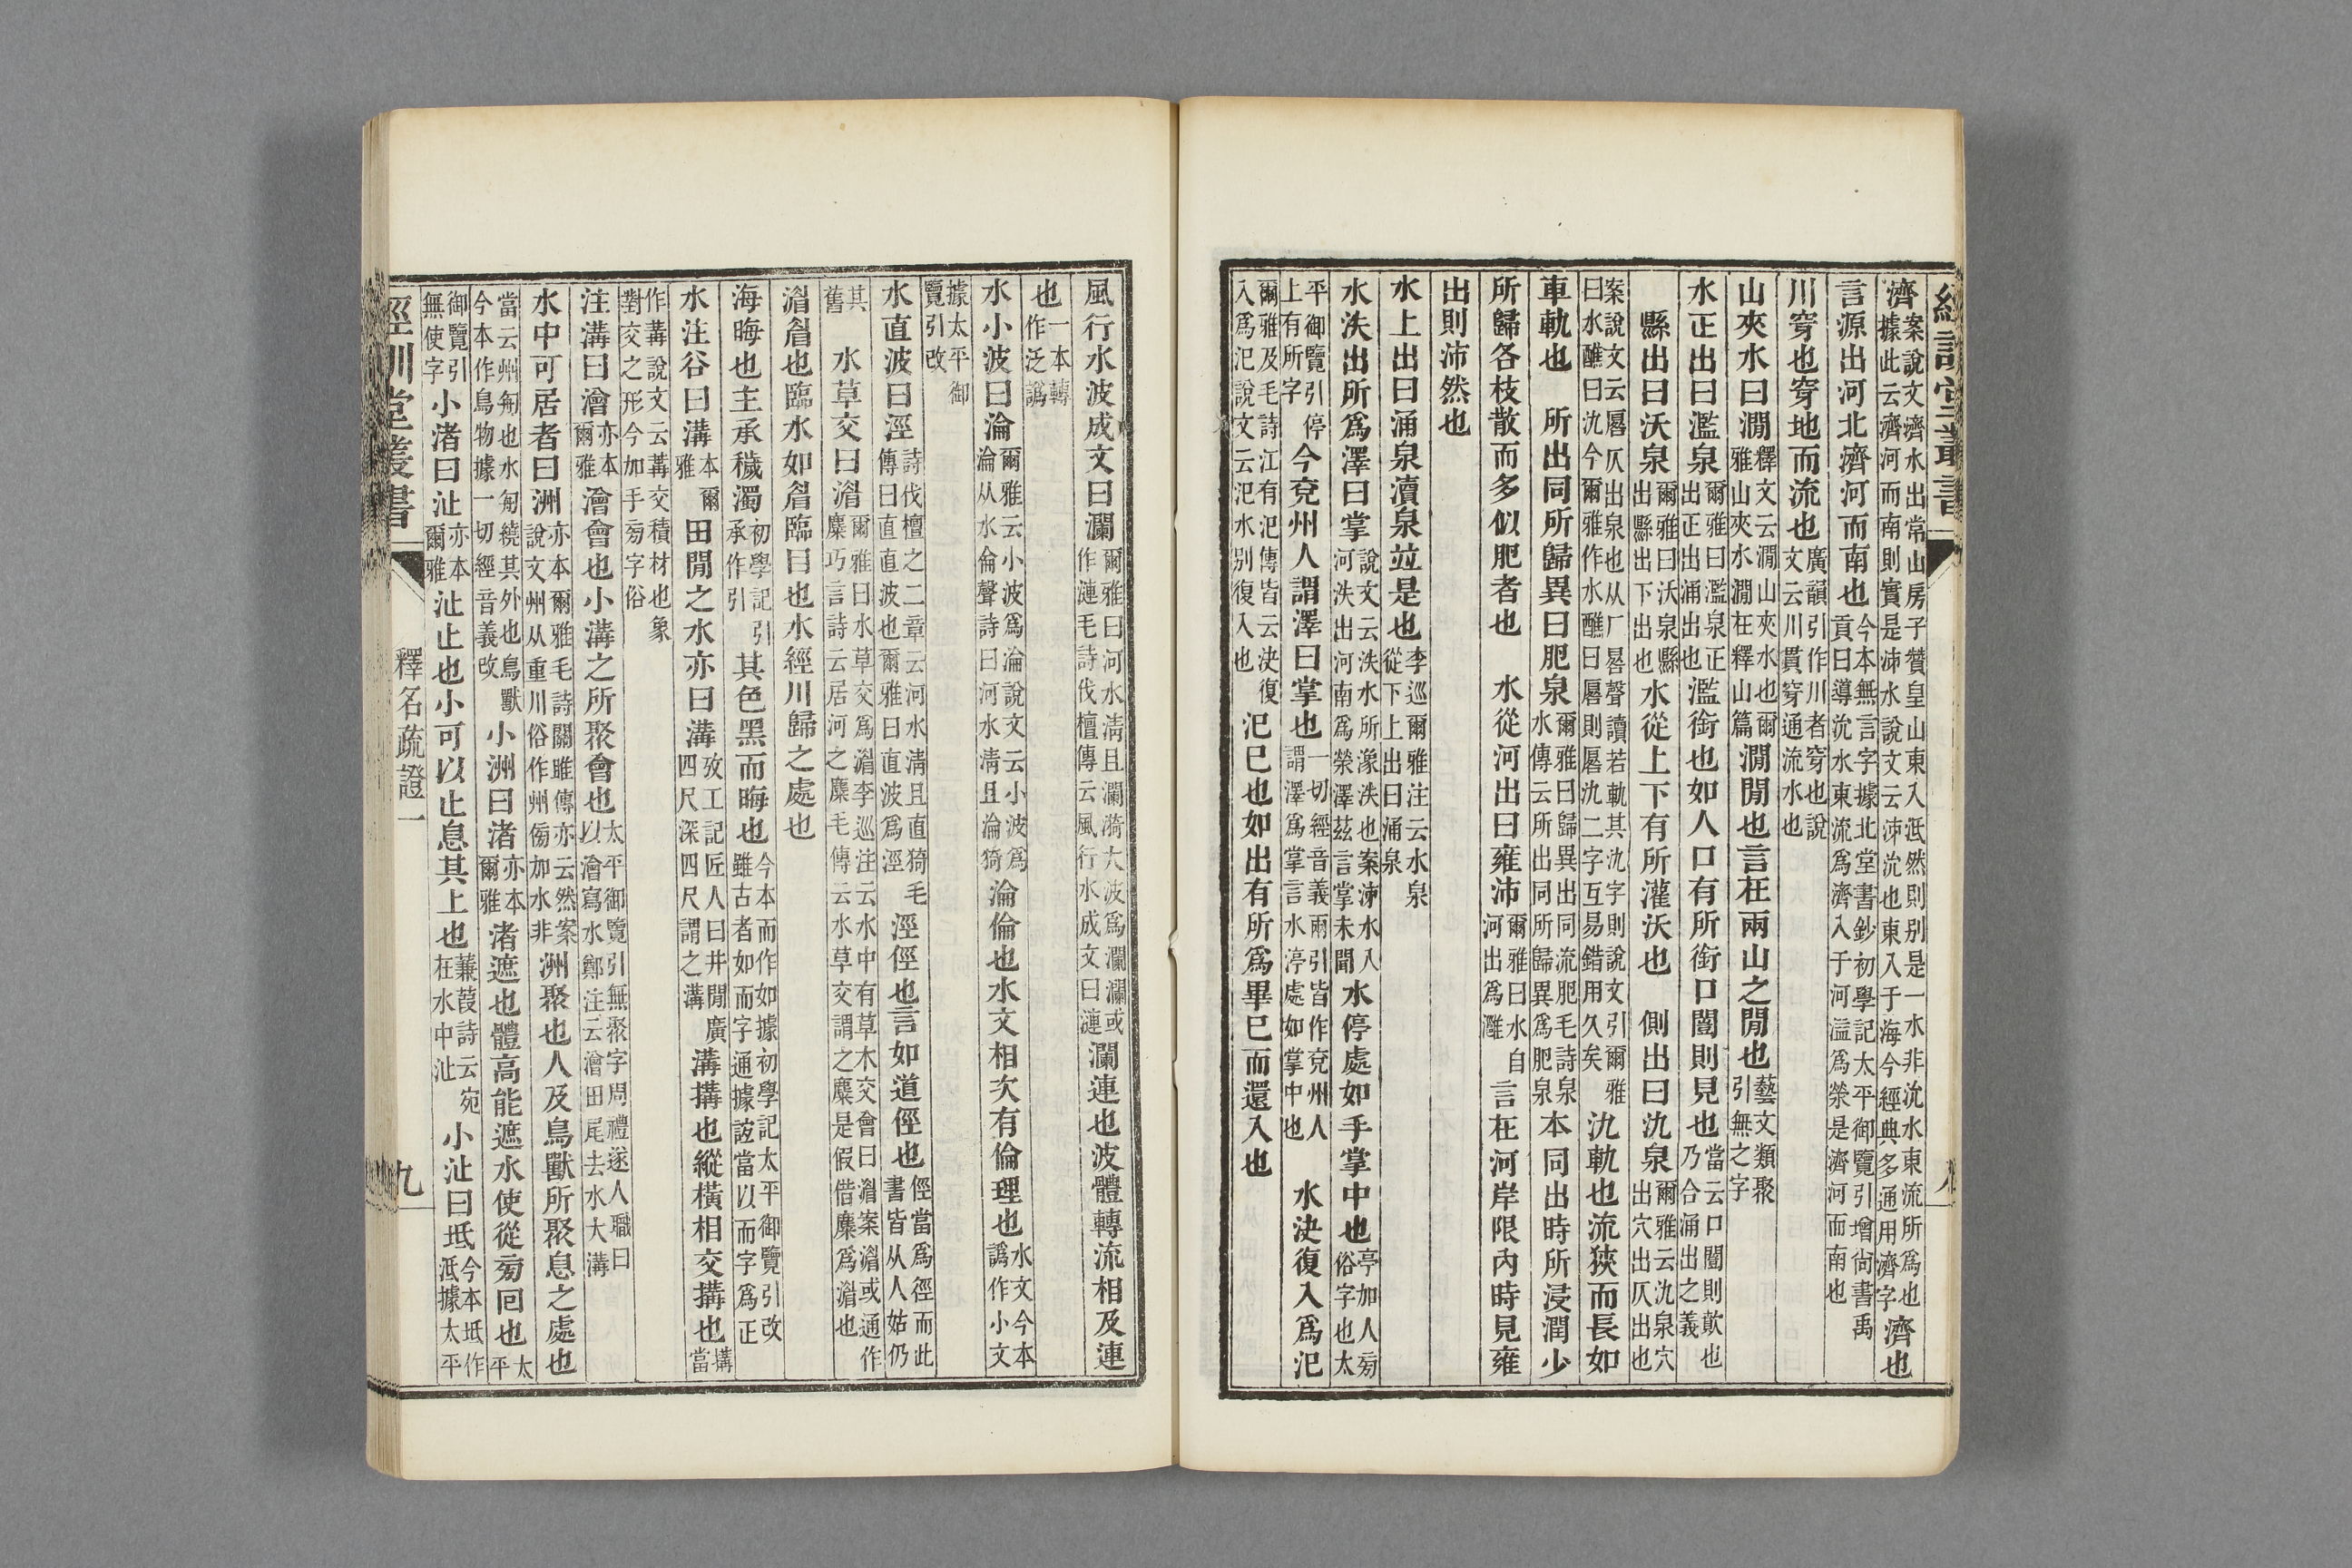 經訓堂叢書 八
濟案說文濟水出常山房子贊皇山東入泜然則別是一水非沇水東流所爲也據此云濟河而南則實是泲水說文云泲沇也東入于海今經典多通用濟字濟也
言源出河北濟河而南也今本無言字據北堂書鈔初學記太平御覽引增尙書禹貢曰導沇水東流爲濟入于河溢爲滎是濟河而南也
川穿也穿地而流也廣韻引作川者穿也說文云川貫穿通流水也
山夾水曰澗釋文云澗山夾水也爾雅山夾水澗在釋山篇澗閒也言在兩山之閒也藝文類聚引無之字
水正出曰濫泉爾雅曰濫泉正出正出涌出也濫銜也如人口有所銜口闓則見也當云口闓則歕也乃合涌出之義
縣出曰沃泉爾雅曰沃泉縣出縣出下出也水從上下有所灌沃也 側出曰氿泉爾雅云氿泉穴出穴出仄出也
案說文云厬仄出泉也从厂晷聲讀若軌其氿字則說文引爾雅曰水醮曰氿今爾雅作水醮曰厬則厬氿二字互易錯用久矣氿軌也流狹而長如
車軌也 所出同所歸異曰肥泉爾雅曰歸異出同流肥毛詩泉水傳云所出同所歸異爲肥泉本同出時所浸潤少
所歸各枝散而多似肥者也 水從河出曰雍沛爾雅曰水自河出爲灉言在河岸限內時見雍
出則沛然也
水上出曰涌泉瀆泉竝是也李巡爾雅注云水泉從下上出曰涌泉
水泆出所爲澤曰掌說文云泆水所潒泆也案泲水入河泆出河南爲滎澤茲言掌未聞水停處如手掌中也亭加人旁俗字也太
平御覽引停上有所字今兗州人謂澤曰掌也一切經音義兩引皆作兗州人謂澤爲掌言水渟處如掌中也 水決復入爲汜
爾雅及毛詩江有汜傳皆云決復入爲汜說文云汜水別復入也汜巳也如出有所爲畢巳而還入也
風行水波成文曰瀾爾雅曰河水淸且瀾漪大波爲瀾瀾或作漣毛詩伐檀傳云風行水成文曰漣瀾連也波體轉流相及連
也一本轉作泛譌
水小波曰淪爾雅云小波爲淪說文云小波爲淪从水侖聲詩曰河水淸且淪猗淪倫也水文相次有倫理也水文今本譌作小文
據太平御覽引改
水直波曰涇詩伐檀之二章云河水淸且直猗毛傳曰直直波也爾雅曰直波爲涇涇徑也言如道徑也徑當爲徑而此書皆从人姑仍
其舊 水草交曰湄爾雅曰水草交爲湄李巡注云水中有草木交會曰湄案湄或通作麋巧言詩云居河之麋毛傳云水草交謂之麋是假借麋爲湄也
湄眉也臨水如眉臨目也水經川歸之處也
海晦也主承穢濁初學記引承作引其色黑而晦也今本而作如據初學記太平御覽引改雖古者如而字通據誼當以而字爲正
水注谷曰溝本爾雅田閒之水亦曰溝攷工記匠人曰井閒廣四尺深四尺謂之溝溝搆也縱橫相交搆也搆當
作冓說文云冓交積材也象對交之形今加手旁字俗
注溝曰澮亦本爾雅澮會也小溝之所聚會也太平御覽引無聚字周禮遂人職曰以澮寫水鄭注云澮田尾去水大溝
水中可居者曰洲亦本爾雅毛詩關雎傳亦云然案說文州从重川俗作州傷加水非洲聚也人及鳥獸所聚息之處也
當云州匊也水匊繞其外也鳥獸今本作鳥物據一切經音義改小洲曰渚亦本爾雅渚遮也體高能遮水使從旁回也太平
御覽引無使字小渚曰沚亦本爾雅沚止也小可以止息其上也蒹葭詩云宛在水中沚小沚曰坻今本坻作泜據太平
經訓堂叢書 釋名疏證一 九